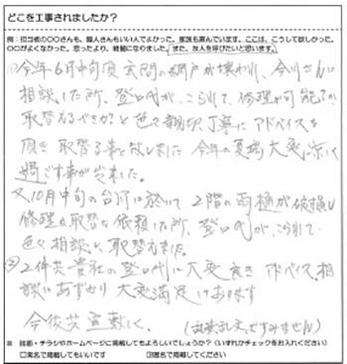 どこを工事されましたか?
例:担当者の〇〇さんも、職人さんもいい人でよかった。家族も喜んでいます。ここは、こうして欲しかった。
〇〇がよくなかった。思ったより、綺麗になりました。また、友人を呼びたいと思います。
①今年6月中旬頃 玄関の網戸が壊われ、今川さんに
相談した所、登口氏が、こられて、修理が可能か?
取替えるべきか?と色々親切、丁寧にアドバイスを
頂き 取替る事と致しました 今年の夏場大変涼しく
過ごす事が出来た。
又10月中旬の台风に於いて 2階の雨樋が破損し
修理&取替を依頼した所、登口氏が、こられて
色々相談し、取替え
②2件共 貴社の登口氏に大変良きアドバイス、相
談にあずかり 大変満足しております
今後共宜敷く。
(乱文ですみません)
※ 抜粋・チラシやホームページに掲載してもよろしいでしょうか?(いずれかチェックをお入れください)
□実名で掲載してもいいです ☑匿名で掲載してください